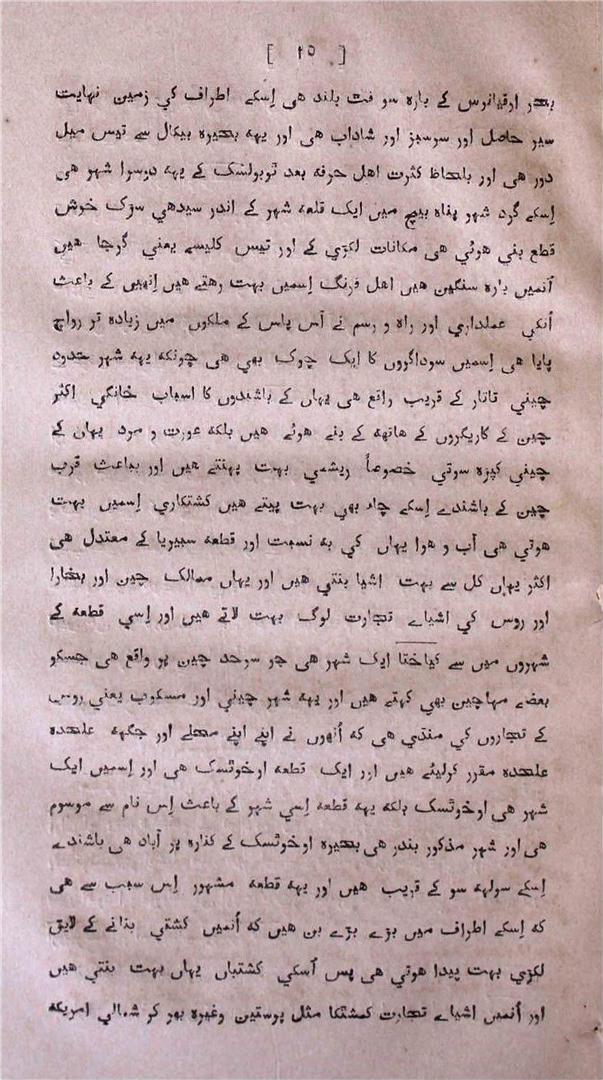 [ ۲۵ ]
بحر اوقیانوس کے بارہ سو فت بلند هی اِسکے اطراف کي زمین نهایت
سیر حاصل اور سرسبز اور شاداب هی اور یهه بحیره بیکال سے تیس میل
دور هی اور بلحاظ کثرت اهل حرفه بعد توبولسک کے یهه دوسرا شهر هی
اِسکے گرد شهر پناه بیچ میں ایک قلعه شهر کے اندر سیدهي سڑک خوش
قطع بني هوئي هی مکانات لکڑي کے اور تیس کلیسے یعني گرجا هیں
اُنمیں باره سنگین هیں اهل فرنگ اِسمیں بهت رهتے هیں اِنهیں کے باعث
اُنکي عملداري اور راه و رسم نے آس پاس کے ملکوں میں زیاده تر رواج
پایا هی اِسمیں سوداگروں کا ایک چوک بهي هی چونکه یهه شهر حدود
چیني تاتار کے قریب واقع هی یهاں کے باشندوں کا اسباب خانگي اکثر
چین کے کاریگروں کے هاتهه کے بنے هوئے هیں بلکه عورت و مرد یهاں کے
چیني کپڑه سوتي خصوصاً ریشمي بهت پهنتے هیں اور بباعث قرب
چین کے باشندے اِسکے چاء بهي بهت پیتے هیں کشتکاري اِسمیں بهت
هوتي هی آب و هوا یهاں کي به نسبت اور قطعه سیبریا کے معتدل هی
اکثر یهاں کل سے بهت اشیا بنتي هیں اور یهاں ممالک چین اور بخارا
اور روس کي اشیاے تجارت لوگ بهت لاتے هیں اور اِسي قطعه کے
شهروں میں سے کیاختا ایک شهر هی جو سرحد چین پر واقع هی جسکو
بعضے مهاچین بهي کهتے هیں اور یهه شهر چیني اور مسکوب یعني روس
کے تجاروں کي منڈي هی که اُنهوں نے اپنے اپنے محلے اور جگهه علحده
علحده مقرر کرلیئے هیں اور ایک قطعه اوخوٹسک هی اور اِسمیں ایک
شهر هی اوخوٹسک بلکه یهه قطعه اِسي شهر کے باعث اِس نام سے موسوم
هی اور شهر مذکور بندر هی بحیره اوخوٹسک کے کناره پر آباد هی باشندے
اِسکے سولهه سو کے قریب هیں اور یهه قطعه مشهور اِس سبب سے هی
که اِسکے اطراف میں بڑے بڑے بن هیں که اُنمیں کشتي بنانے کے لایق
لکڑي بهت پیدا هوتي هی پس اُسکي کشتیاں یهاں بهت بنتي هیں
اور اُنمیں اشیاے تجارت کمشتکا مثل پوستین وغیره بهر کر شمالي امریکه